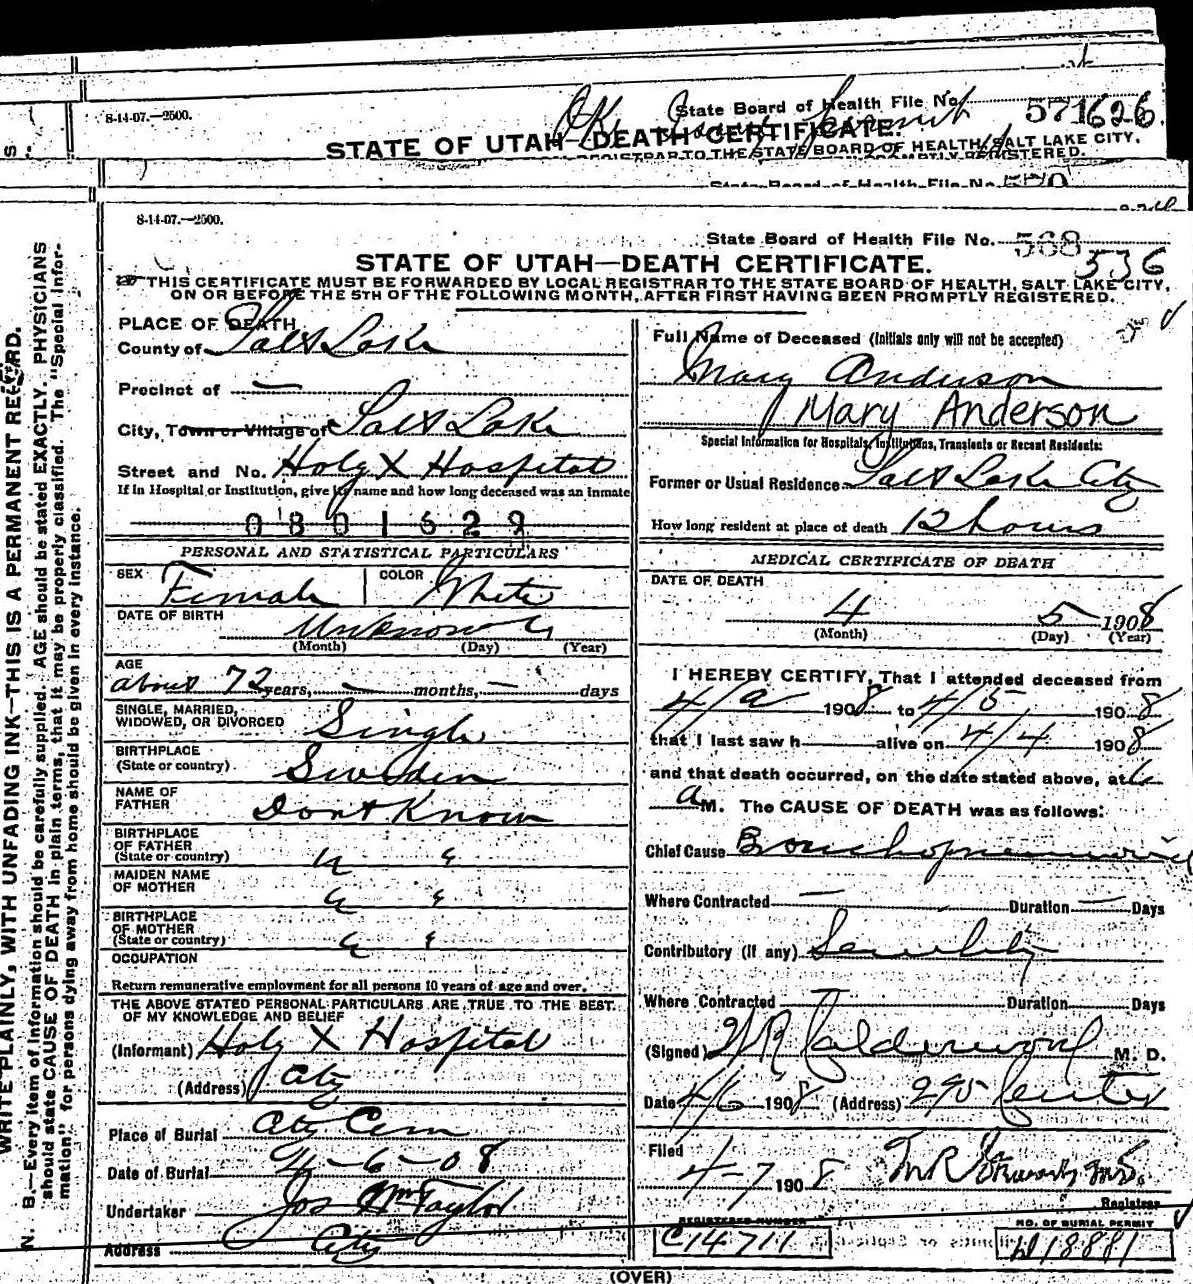 8-14-07.—2500.
State Board of Health File No. 571 626
STATE OF UTAH—DEATH CERTIFICATE.
REGISTRAR TO THE STATE BOARD OF HEALTH, SALT LAKE CITY,
REGISTERED.
State Board of Health File No. 570
8-14-07.—2500.
State Board of Health File No. 568 536
STATE OF UTAH—DEATH CERTIFICATE.
THIS CERTIFICATE MUST BE FORWARDED BY LOCAL REGISTRAR TO THE STATE BOARD OF HEALTH, SALT LAKE CITY,
ON OR BEFORE THE 5TH OF THE FOLLOWING MONTH, AFTER FIRST HAVING BEEN PROMPTLY REGISTERED.
WRITE PLAINLY, WITH UNFADING INK—THIS IS A PERMANENT RECORD.
N. B.—Every item of information should be carefully supplied. AGE should be stated EXACTLY. PHYSICIANS
should state CAUSE OF DEATH in plain terms, that it may be properly classified. The "Special Infor-
mation" for persons dying away from home should be given in every instance.
PLACE OF DEATH
County of Salt Lake
Precinct of —
City, Town or Village of Salt Lake
Street and No. Holy X Hospital
If in Hospital or Institution, give its name and how long deceased was an inmate
0801629
PERSONAL AND STATISTICAL PARTICULARS
SEX Female COLOR White
DATE OF BIRTH Unknown
(Month) (Day) (Year)
AGE
about 72 years, — months, — days
SINGLE, MARRIED,
WIDOWED, OR DIVORCED Single
BIRTHPLACE
(State or country) Sweden
NAME OF
FATHER Dont Know
BIRTHPLACE
OF FATHER
(State or country) " "
MAIDEN NAME
OF MOTHER " "
BIRTHPLACE
OF MOTHER
(State or country) " "
OCCUPATION
Return remunerative employment for all persons 10 years of age and over.
THE ABOVE STATED PERSONAL PARTICULARS ARE TRUE TO THE BEST
OF MY KNOWLEDGE AND BELIEF
(Informant) Holy X Hospital
(Address) City
Place of Burial City Cem
Date of Burial 4-6-08
Undertaker Jos Wm Taylor
Address City
Full Name of Deceased (Initials only will not be accepted)
Mary Anderson
Mary Anderson
Special Information for Hospitals, Institutions, Transients or Recent Residents:
Former or Usual Residence Salt Lake City
How long resident at place of death 12 hours
MEDICAL CERTIFICATE OF DEATH
DATE OF DEATH
4 5 1908
(Month) (Day) (Year)
I HEREBY CERTIFY, That I attended deceased from
1908 to 4/5 1908
that I last saw h alive on 4/4 1908
and that death occurred, on the date stated above, at 6
a M. The CAUSE OF DEATH was as follows:
Chief Cause Bronchopneumonia
Where Contracted — Duration — Days
Contributory (if any) Senility
Where Contracted Duration Days
(Signed) W R Calderwood M. D.
Date 4/6 1908 (Address) 295 Center
Filed
4-7 1908 M R
Registrar
REGISTERED NUMBER
C14711
NO. OF BURIAL PERMIT
18881
(OVER)